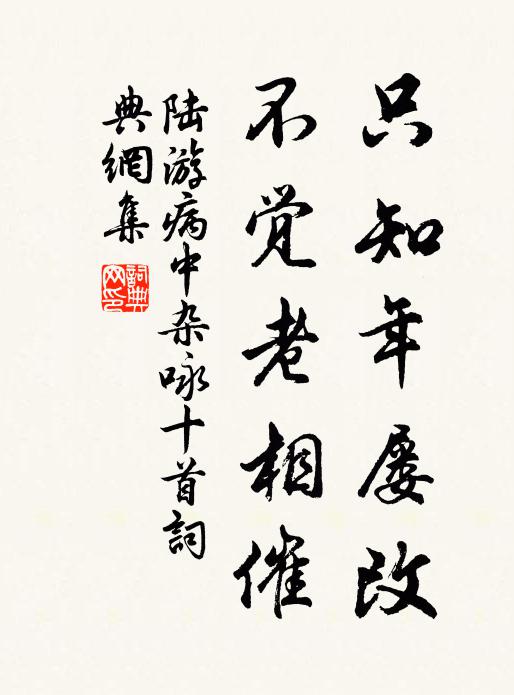 只知年屡改
不觉老相催
陆游病中杂咏十首詞
典網集
詞典网印